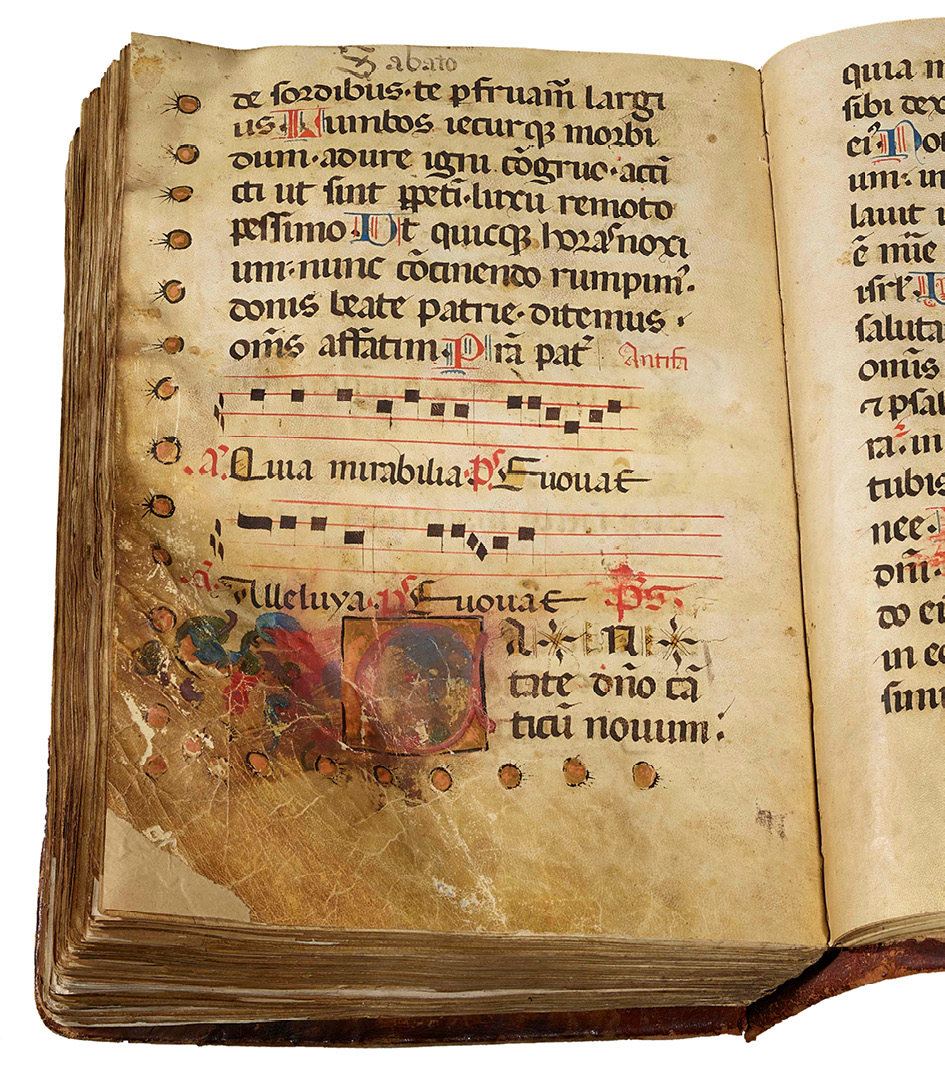 Sabato
de sordibus·te pfruam̄ largi
us Lumbos iecurqꝫ morbi
dum·adure igni cōgruo·acti
cti ut sint ꝑpeti·luxu remoto
pessimo Ut quicqꝫ horas noxi
um·nunc cōcinendo rumpim᷒·
donis beate patrie·ditemus·
om̄s affatim P̄ra pat᷒ Antifa
A. Quia mirabilia ps Euouae
A. Alleluya ps Euouae Ps.
CANTATE
tate dn̄o cā
ticū nouum:
quia m
sibi dex
ei᷒ No
um: in
lauit
ē mīe
isrl᷒
saluta
om̄is
⁊ psal
ra in
tubis
nee
dn̄i
do
in
sunt